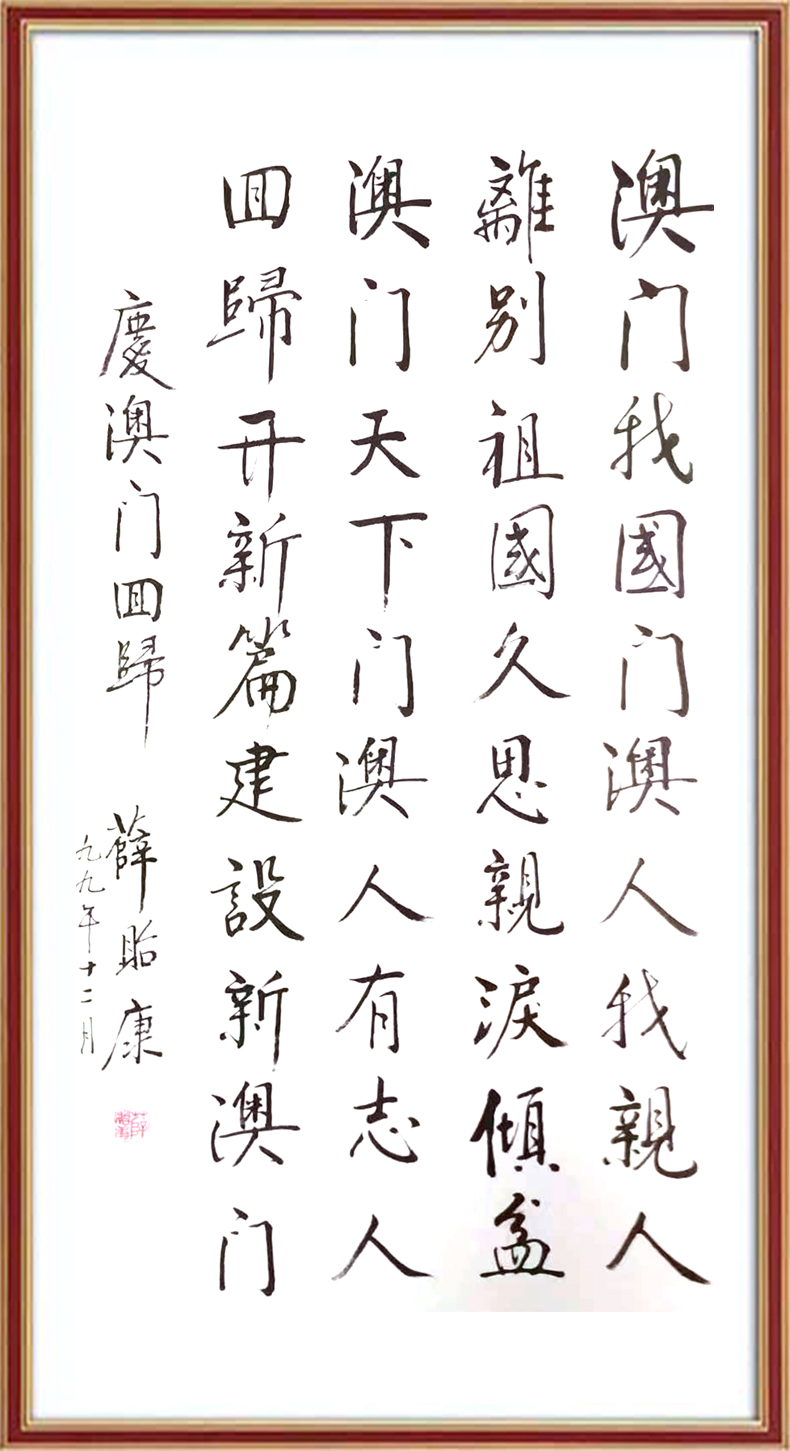 澳门我國门澳人我親人
離别祖國久思親淚傾盆
澳门天下门澳人有志人
回歸开新篇建設新澳门
慶澳门回歸 薛貽康
九九年十二月